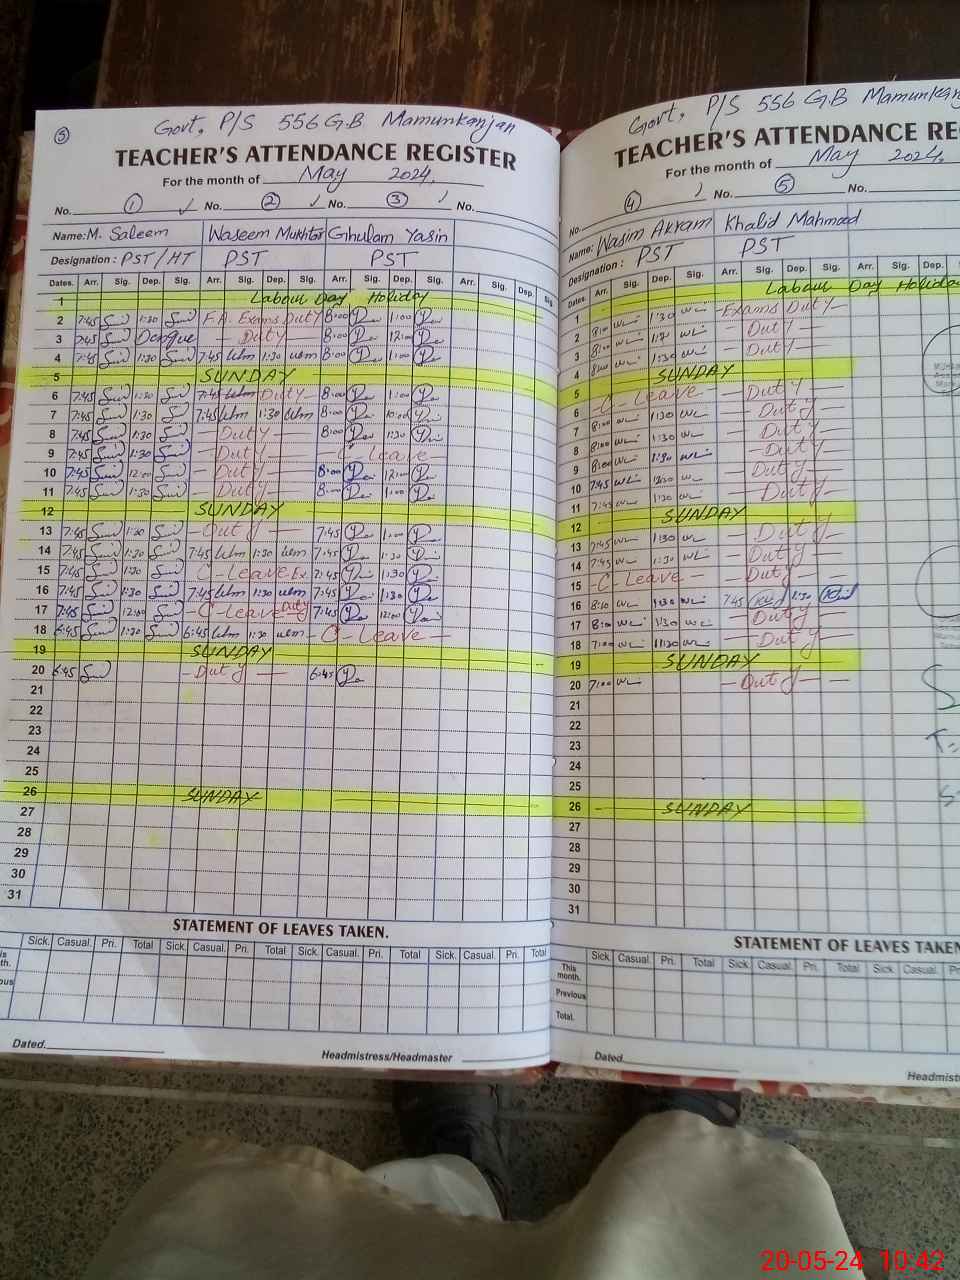 5
Govt, P/S 556 G.B Mamunkanjan
TEACHER'S ATTENDANCE REGISTER
For the month of May 2024,
No. 1 No. 2 No. 3 No.
Name: M. Saleem Waseem Mukhtar Ghulam Yasin
Designation: PST/HT PST PST
Dates. Arr. Sig. Dep. Sig. Arr. Sig. Dep. Sig. Arr. Sig. Dep. Sig. Arr. Sig. Dep. Sig
1 Labour Day Holiday
2 7:45 1:30 F.A. Exams Duty 8:00 1:00
3 7:45 Dengue - Duty - 8:00 12:00
4 7:45 1:30 7:45 1:30 8:00 1:00
5 SUNDAY
6 7:45 1:30 7:45 Duty - 8:00 1:00
7 7:45 1:30 7:45 1:30 8:00 10:00
8 7:45 1:30 - Duty - 8:00 1:30
9 7:45 1:30 - Duty - C - Leave -
10 7:45 12:00 - Duty - 8:00 12:00
11 7:45 1:30 - Duty - 8:00 1:00
12 SUNDAY
13 7:45 1:30 - Duty - 7:45 1:00
14 7:45 1:30 7:45 1:30 7:45 1:30
15 7:45 1:30 C - Leave - Ex. 7:45 1:30
16 7:45 1:30 7:45 1:30 7:45 1:30
17 7:45 12:00 - C - Leave Duty 7:45 12:00
18 6:45 1:30 6:45 1:30 - C - Leave -
19 SUNDAY
20 6:45 - Duty - 6:45
21
22
23
24
25
26 SUNDAY
27
28
29
30
31
STATEMENT OF LEAVES TAKEN.
Sick. Casual. Pri. Total Sick. Casual. Pri. Total Sick. Casual. Pri. Total Sick. Casual. Pri. Total
Dated.
Headmistress/Headmaster
Govt, P/S 556 G.B Mamunkan
TEACHER'S ATTENDANCE RE
For the month of May 2024.
No. 4 No. 5 No.
Name: Wasim Akram Khalid Mahmood
Designation: PST PST
Dates. Arr. Sig. Dep. Sig. Arr. Sig. Dep. Sig. Arr. Sig. Dep.
1 Labour Day Holiday
2 8:00 1:30 - Exams Duty -
3 8:00 - Duty -
4 8:00 1:30 - Duty -
5 SUNDAY
6 - C - Leave - Duty -
7 8:00 1:30 - Duty -
8 8:00 1:30 - Duty -
9 8:00 1:30 - Duty -
10 7:45 12:30 - Duty -
11 7:45 1:30 - Duty -
12 SUNDAY
13 7:45 1:30 - Duty -
14 7:45 1:30 - Duty -
15 - C - Leave - - Duty -
16 8:10 1:30 7:45 1:30
17 8:00 1:30 - Duty -
18 7:00 11:30 - Duty -
19 SUNDAY
20 7:00 - Duty -
21
22
23
24
25
26 SUNDAY
27
28
29
30
31
STATEMENT OF LEAVES TAKEN
Sick. Casual. Pri. Total Sick. Casual. Pri. Total Sick. Casual. Pri.
This month.
Previous
Total.
Dated.
Headmist
20-05-24 10:42